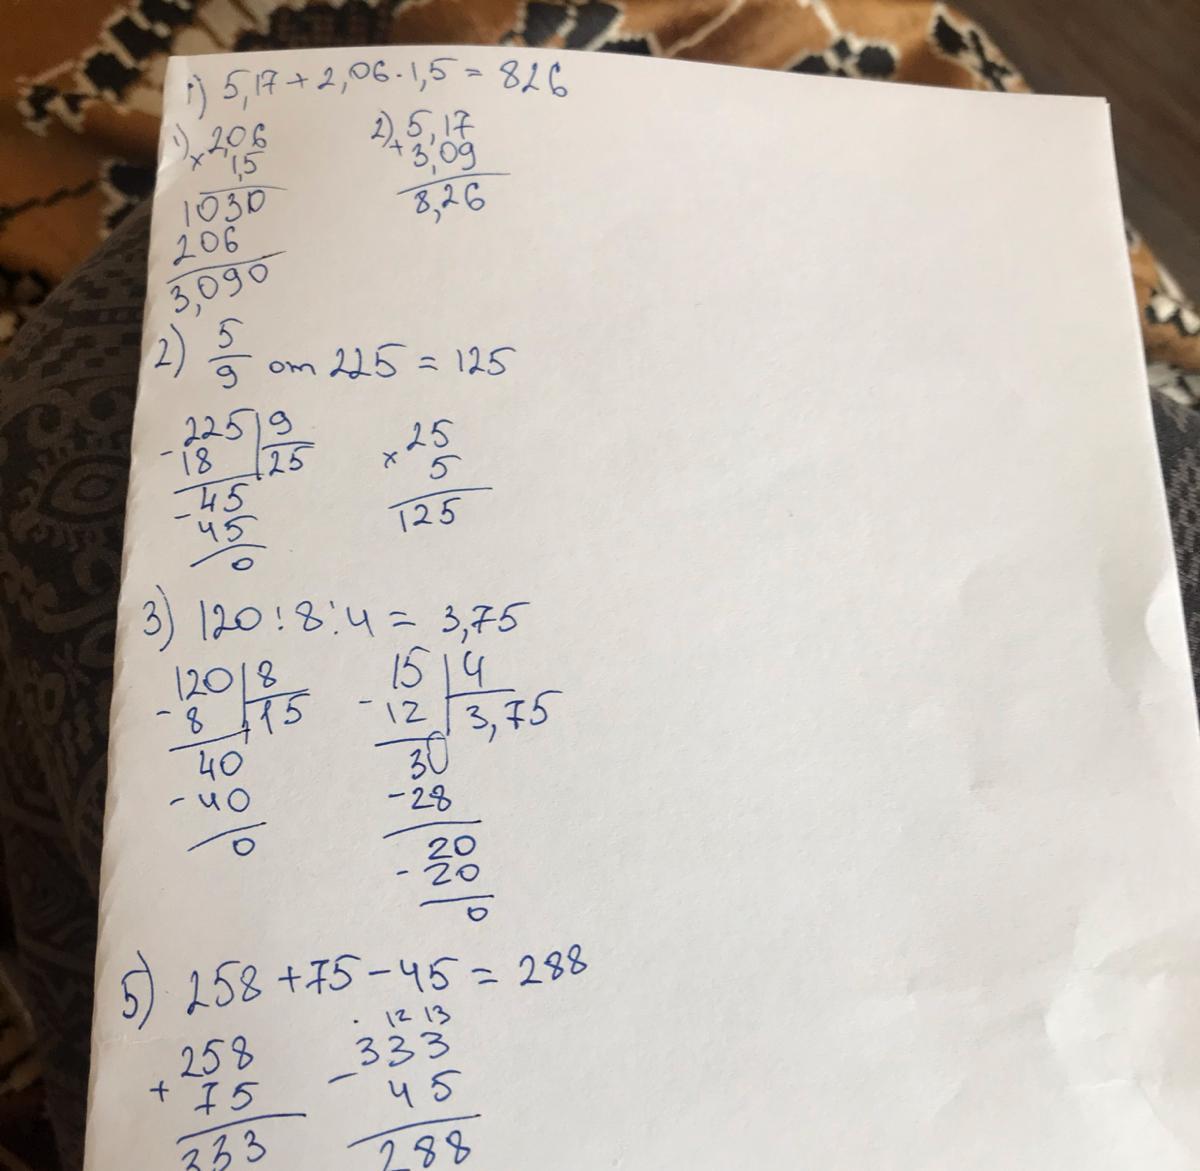 1) 5,17 + 2,06 · 1,5 = 826
1) × 2,06
1,5
1030
206
3,090
2) + 5,17
3,09
8,26
2) 5/9 от 225 = 125
- 225 | 9
18 | 25
- 45
45
0
× 25
5
125
3) 120 : 8 : 4 = 3,75
- 120 | 8
8 | 15
40
- 40
0
- 15 | 4
12 | 3,75
30
- 28
20
- 20
0
5) 258 + 75 - 45 = 288
+ 258
75
333
. 12 13
- 333
45
288